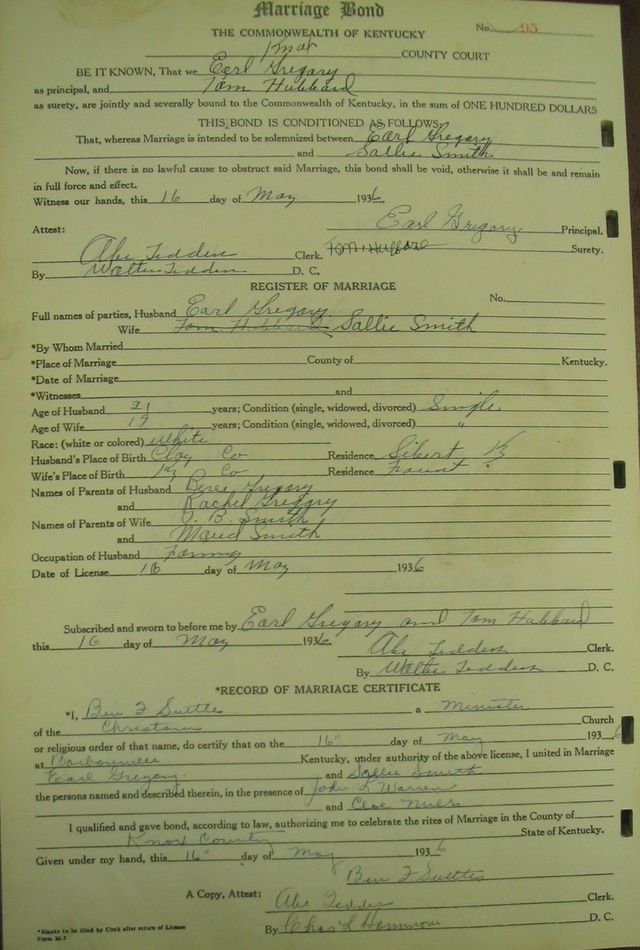 Marriage Bond
THE COMMONWEALTH OF KENTUCKY
No. 95
Knox COUNTY COURT
BE IT KNOWN, That we Earl Gregory
as principal, and Tom Hubbard
as surety, are jointly and severally bound to the Commonwealth of Kentucky, in the sum of ONE HUNDRED DOLLARS
THIS BOND IS CONDITIONED AS FOLLOWS:
That, whereas Marriage is intended to be solemnized between Earl Gregory
and Sallie Smith
Now, if there is no lawful cause to obstruct said Marriage, this bond shall be void, otherwise it shall be and remain
in full force and effect.
Witness our hands, this 16 day of May 1936
Earl Gregory Principal.
Attest:
Abe Tedders Clerk. Tom Hubbard Surety.
By Walter Tedders D. C.
REGISTER OF MARRIAGE
No.
Full names of parties, Husband Earl Gregory
Wife Tom Hubbard Sallie Smith
*By Whom Married
*Place of Marriage County of Kentucky.
*Date of Marriage
*Witnesses and
Age of Husband 21 years; Condition (single, widowed, divorced) Single
Age of Wife 19 years; Condition (single, widowed, divorced) "
Race: (white or colored) White
Husband's Place of Birth Clay Co Residence Sibert Ky
Wife's Place of Birth Ky Co Residence
Names of Parents of Husband Gregory
and Rachel Gregory
Names of Parents of Wife J. B. Smith
and Maud Smith
Occupation of Husband Farming
Date of License 16 day of May 1936
Subscribed and sworn to before me by Earl Gregory and Tom Hubbard
this 16 day of May 1936
Abe Tedders Clerk.
By Walter Tedders D. C.
*RECORD OF MARRIAGE CERTIFICATE
*I, Ben F Suttles a Minister
of the Christian Church
or religious order of that name, do certify that on the 16" day of May 1936
at Barbourville Kentucky, under authority of the above license, I united in Marriage
Earl Gregory and Sallie Smith
the persons named and described therein, in the presence of John L Warren
and Cloe
I qualified and gave bond, according to law, authorizing me to celebrate the rites of Marriage in the County of
Knox County State of Kentucky.
Given under my hand, this 16" day of May 1936
Ben F Suttles
A Copy, Attest: Abe Tedders Clerk.
By Chas L Hammons D. C.
*Blanks to be filled by Clerk after return of License
Form M-7